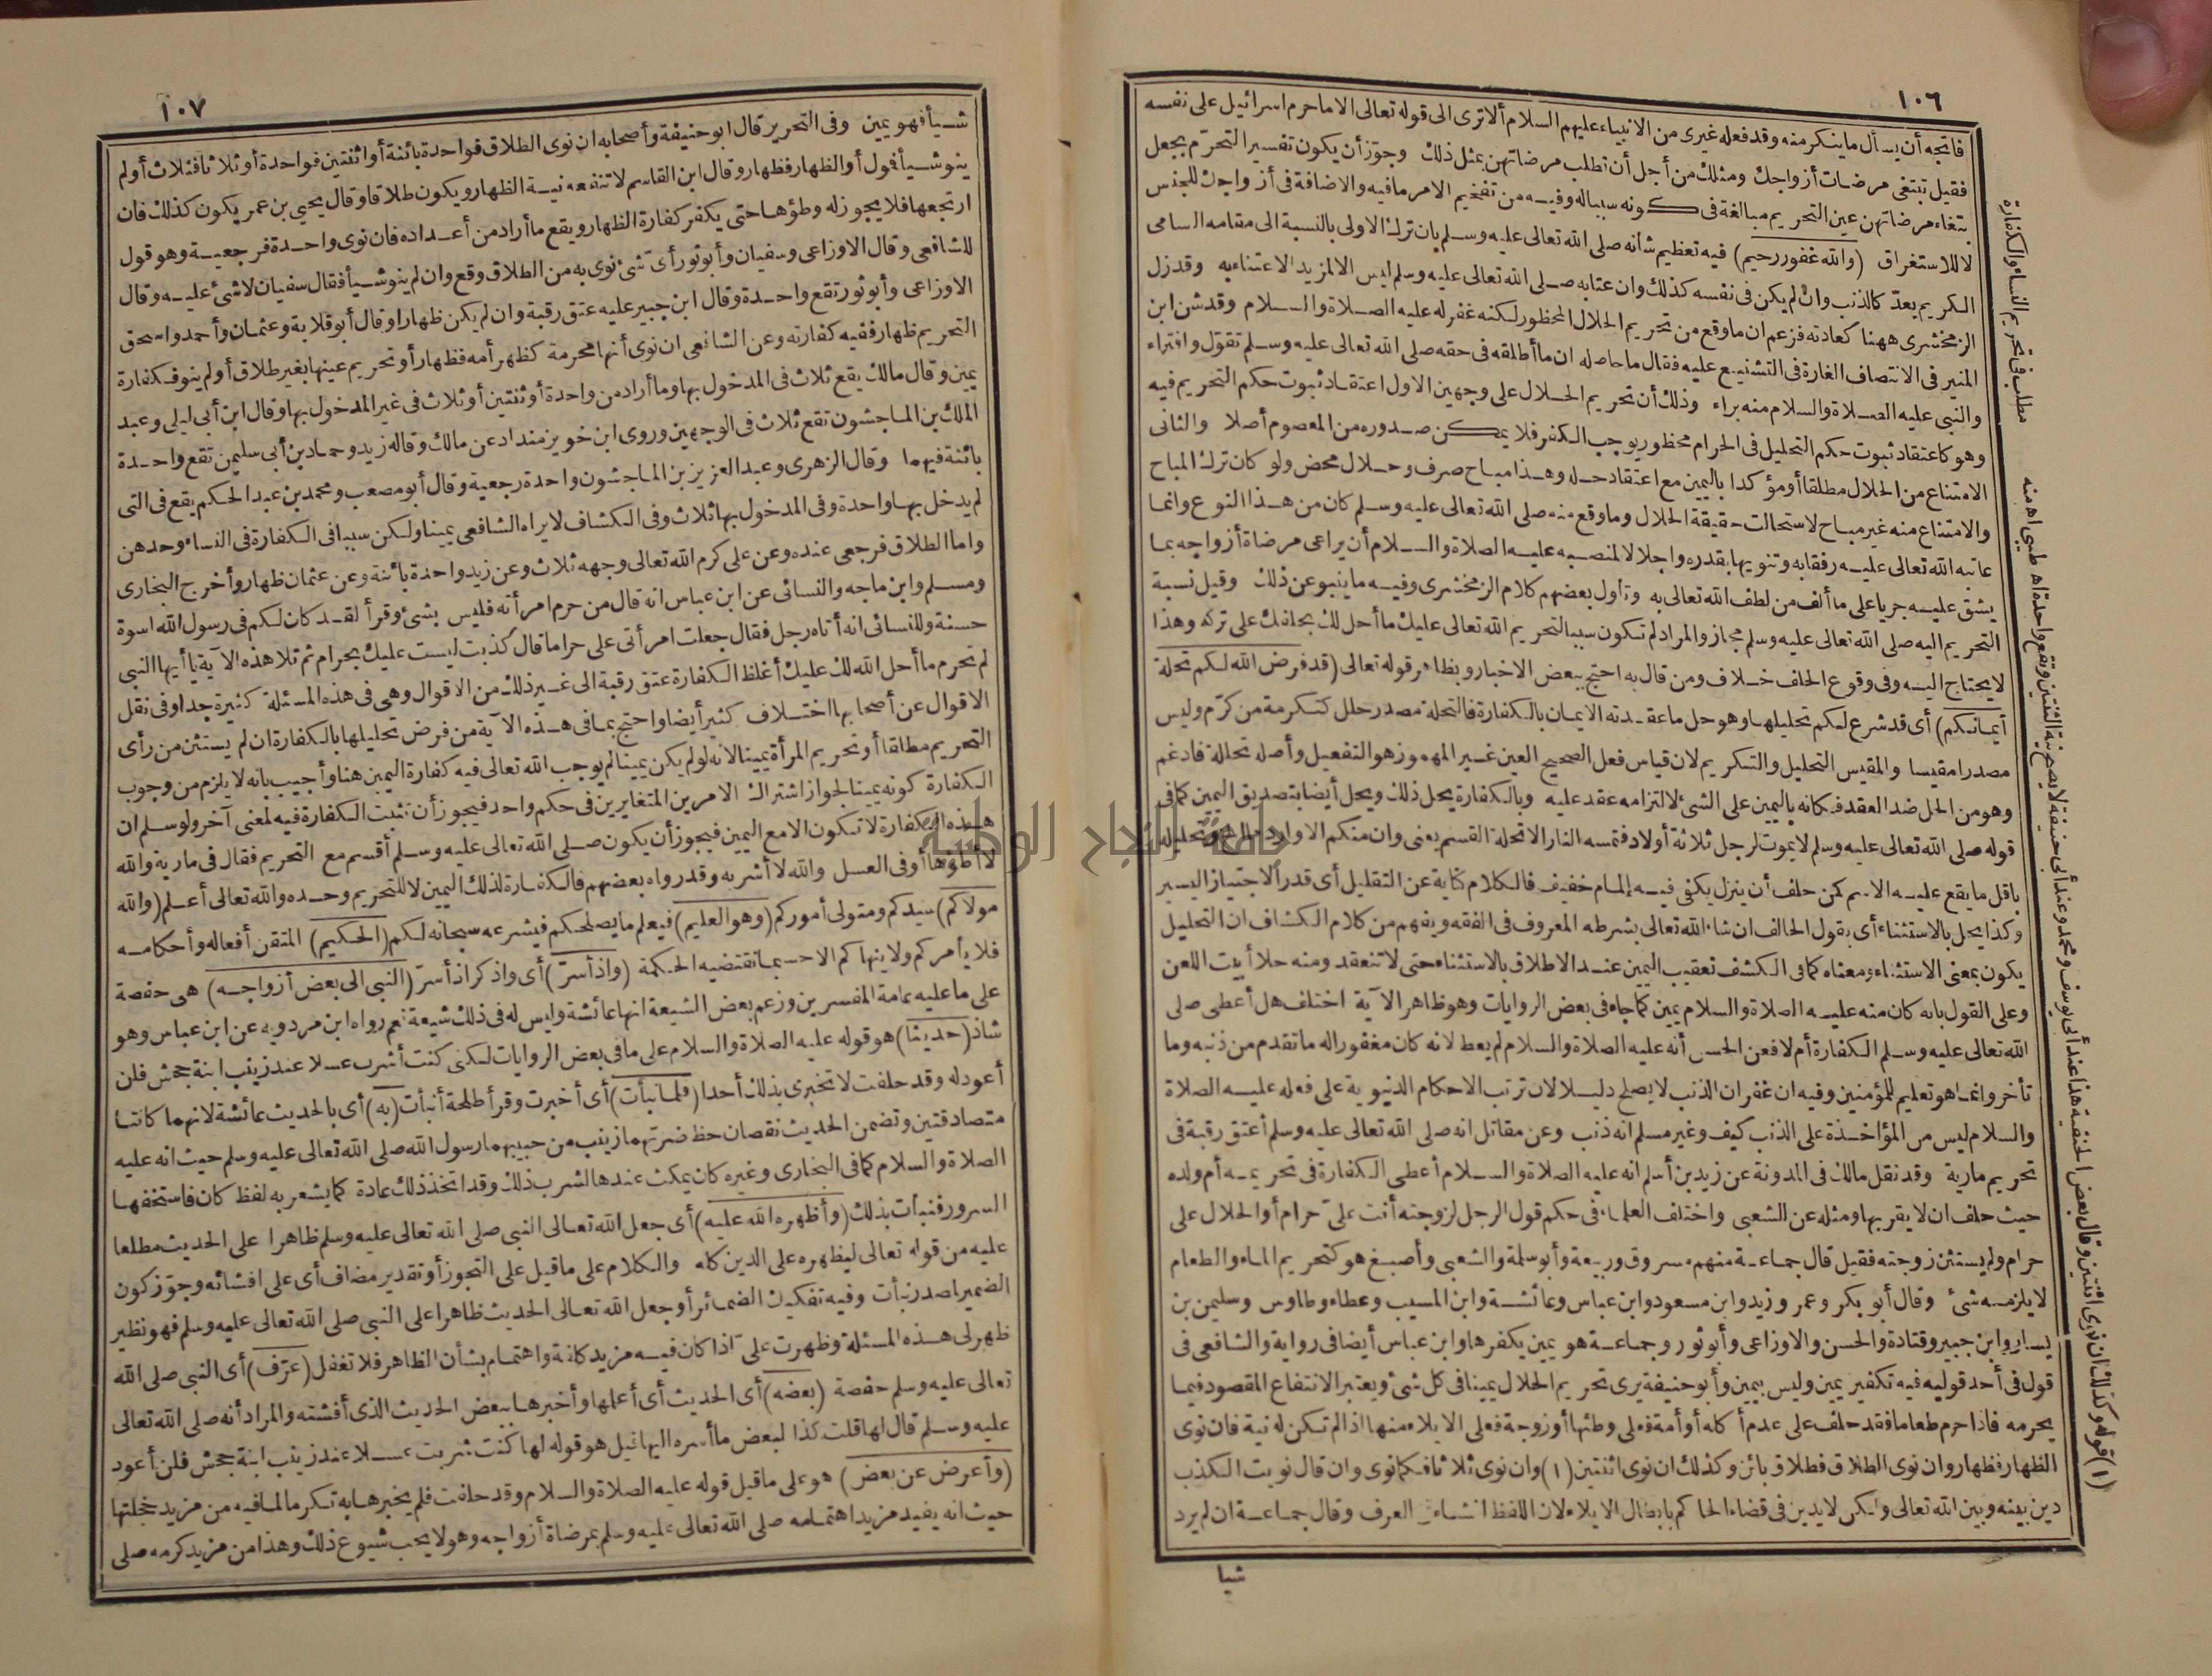 ١٠٦
فاتجه أن يسأل ما ينكر منه وقد فعله غيرى من الانبياء عليهم السلام ألا ترى الى قوله تعالى الا ما حرم اسرائيل على نفسه
فقيل تبتغى مرضات أزواجك ومثلك من أجل أن تطلب مرضاتهن بمثل ذلك وجوّز أن يكون تفسير التحرّم بجعل
بتغاء مرضاتهن عين التحريم مبالغة فى كونه سبباله وفيه من تفخيم الامر مافيه والاضافة فى أزواجك للجنس
لا للاستغراق (والله غفور رحيم) فيه تعظيم شأنه صلى الله تعالى عليه وسلم بان ترك الاولى بالنسبة الى مقامه السامى
الكريم يعدّ كالذنب وان لم يكن فى نفسه كذلك وان عتابه صلى الله تعالى عليه وسلم ليس الا لمزيد الاعتناء به وقد زل
الزمخشرى ههنا كعادته فزعم ان ما وقع من تحريم الحلال المحظور لكنه غفر له عليه الصلاة والسلام وقد شن ابن
المنير فى الانتصاف الغارة فى التشنيع عليه فقال ما حاصله ان ما أطلقه فى حقه صلى الله تعالى عليه وسلم تقوّل وافتراء
والنبى عليه الصلاة والسلام منه براء وذلك أن تحريم الحلال على وجهين الاول اعتقاد ثبوت حكم التحريم فيه
وهو كاعتقاد ثبوت حكم التحليل فى الحرام محظور يوجب الكفر فلا يمكن صدوره من المعصوم أصلا والثانى
الامتناع من الحلال مطلقا أو مؤكدا باليمين مع اعتقاد حله وهذا مباح صرف وحلال محض ولو كان ترك المباح
والامتناع منه غير مباح لاستحالت حقيقة الحلال وما وقع منه صلى الله تعالى عليه وسلم كان من هذا النوع وانما
عاتبه الله تعالى عليه رفقا به وتنويها بقدره واجلالا لمنصبه عليه الصلاة والسلام أن يراعى مرضاة أزواجه بما
يشق عليه جريا على ما ألف من لطف الله تعالى به وتأول بعضهم كلام الزمخشرى وفيه ما ينبو عن ذلك وقيل نسبة
التحريم اليه صلى الله تعالى عليه وسلم مجاز والمراد لم تكون سببا لتحريم الله تعالى عليك ما أحل لك بحلفك على تركه وهذا
لا يحتاج اليه وفى وقوع الحلف خلاف ومن قال به احتج ببعض الاخبار وبظاهر قوله تعالى (قد فرض الله لكم تحلة
أيمانكم) أى قد شرع لكم تحليلها وهو حل ما عقدته الايمان بالكفارة فالتحلة مصدر حلل كتكرمة من كرّم وليس
مصدرا مقيسا والمقيس التحليل والتكريم لان قياس فعل الصحيح العين غير المهموز هو التفعيل وأصله تحللة فادغم
وهو من الحل ضد العقد فكانه باليمين على الشئ لالتزامه عقد عليه وبالكفارة يحل ذلك ويحل أيضا بتصديق اليمين كما فى
قوله صلى الله تعالى عليه وسلم لا يموت لرجل ثلاثة أولاد فتمسه النار الا تحلة القسم يعنى وان منكم الا واردها وتحليله
باقل ما يقع عليه الاسم كمن حلف أن ينزل يكفى فيه إلمام خفيف فالكلام كناية عن التقليل أى قدر الاجتياز اليسير
وكذا يحل بالاستثناء أى بقول الحالف ان شاء الله تعالى بشرطه المعروف فى الفقه ويفهم من كلام الكشاف ان التحليل
يكون بمعنى الاستثناء ومعناه كما فى الكشف تعقيب اليمين عند الاطلاق بالاستثناء حتى لا تنعقد ومنه حلا أبيت اللعن
وعلى القول بانه كان منه عليه الصلاة والسلام يمين كما جاء فى بعض الروايات وهو ظاهر الآية اختلف هل أعطى صلى
الله تعالى عليه وسلم الكفارة أم لا فعن الحسن أنه عليه الصلاة والسلام لم يعط لانه كان مغفورا له ما تقدم من ذنبه وما
تأخر وانما هو تعليم للمؤمنين وفيه ان غفران الذنب لا يصلح دليلا لان ترتب الاحكام الدنيوية على فعله عليه الصلاة
والسلام ليس من المؤاخذة على الذنب كيف وغير مسلم انه ذنب وعن مقاتل انه صلى الله تعالى عليه وسلم أعتق رقبة فى
تحريم مارية وقد نقل مالك فى المدونة عن زيد بن أسلم انه عليه الصلاة والسلام أعطى الكفارة فى تحريمه أم ولده
حيث حلف ان لا يقربها ومثله عن الشعبى واختلف العلماء فى حكم قول الرجل لزوجته أنت علىّ حرام أو الحلال على
حرام ولم يستثن زوجته فقيل قال جماعة منهم مسروق وربيعة وأبو سلمة والشعبى وأصبغ هو كتحريم الماء والطعام
لا يلزمه شئ وقال أبو بكر وعمر وزيد وابن مسعود وابن عباس وعائشة وابن المسيب وعطاء وطاوس وسليمن بن
يسار وابن جبير وقتادة والحسن والاوزاعى وأبو ثور وجماعة هو يمين يكفرها وابن عباس أيضا فى رواية والشافعى فى
قول فى أحد قوليه فيه تكفير يمين وليس بيمين وأبو حنيفة يرى تحريم الحلال يمينا فى كل شئ ويعتبر الانتفاع المقصود فيما
يحرمه فاذا حرم طعاما فقد حلف على عدم أكله أو أمة فعلى وطئها أو زوجة فعلى الايلاء منها اذا لم تكن له نية فان نوى
الظهار فظهار وان نوى الطلاق فطلاق بائن وكذلك ان نوى اثنتين (١) وان نوى ثلاثا فكما نوى وان قال نويت الكذب
دين بينه وبين الله تعالى ولكن لا يدين فى قضاء الحاكم بابطال الايلاء لان اللفظ انشاء فى العرف وقال جماعة ان لم يرد
شيا
مطلب فى تحريم النساء والكفارة
(١) قوله وكذلك ان نوى اثنتين وقال بعض الحنفية هذا عند أبى يوسف ومحمد وعند أبى حنيفة لا يصح نية الثنتين وتقع واحدة اه طيبى اه منه
١٠٧
شيأ فهو يمين وفى التحرير قال ابو حنيفة وأصحابه ان نوى الطلاق فواحدة بائنة أو اثنتين فواحدة أو ثلاثا فثلاث أو لم
ينو شيأ فمول أو الظهار فظهار وقال ابن القاسم لا تنفعه نية الظهار ويكون طلاقا وقال يحيى بن عمر يكون كذلك فان
ارتجعها فلا يجوز له وطؤها حتى يكفر كفارة الظهار ويقع ما أراد من أعداده فان نوى واحدة فرجعية وهو قول
للشافعى وقال الاوزاعى وسفيان وأبو ثور أىّ شئ نوى به من الطلاق وقع وان لم ينو شيأ فقال سفيان لا شئ عليه وقال
الاوزاعى وأبو ثور تقع واحدة وقال ابن جبير عليه عتق رقبة وان لم يكن ظهارا وقال أبو قلابة وعثمان وأحمد واسحق
التحريم ظهار ففيه كفارته وعن الشافعى ان نوى أنها محرمة كظهر أمه فظهار أو تحريم عينها بغير طلاق أو لم ينو فكفارة
يمين وقال مالك يقع ثلاث فى المدخول بها وما أراد من واحدة أو ثنتين أو ثلاث فى غير المدخول بها وقال ابن أبى ليلى وعبد
الملك بن الماجشون تقع ثلاث فى الوجهين وروى ابن خويز منداد عن مالك وقاله زيد وحماد بن أبى سليمن تقع واحدة
بائنة فيهما وقال الزهرى وعبد العزيز بن الماجشون واحدة رجعية وقال أبو مصعب ومحمد بن عبد الحكم يقع فى التى
لم يدخل بها واحدة وفى المدخول بها ثلاث وفى الكشاف لا يراه الشافعى يمينا ولكن سببا فى الكفارة فى النساء وحدهن
واما الطلاق فرجعى عنده وعن على كرم الله تعالى وجهه ثلاث وعن زيد واحدة بائنة وعن عثمان ظهار وأخرج البخارى
ومسلم وابن ماجه والنسائى عن ابن عباس انه قال من حرم امرأته فليس بشئ وقرأ لقد كان لكم فى رسول الله اسوة
حسنة وللنسائى انه أتاه رجل فقال جعلت امرأتى على حراما قال كذبت ليست عليك بحرام ثم تلا هذه الآية يا أيها النبى
لم تحرم ما أحل الله لك عليك أغلظ الكفارة عتق رقبة الى غير ذلك من الاقوال وهى فى هذه المسئلة كثيرة جدا وفى نقل
الاقوال عن أصحابها اختلاف كثير أيضا واحتج بما فى هذه الآية من فرض تحليلها بالكفارة ان لم يستثن من رأى
التحريم مطلقا أو تحريم المرأة يمينا لانه لو لم يكن يمينا لم يوجب الله تعالى فيه كفارة اليمين هنا وأجيب بانه لا يلزم من وجوب
الكفارة كونه يمينا لجواز اشتراك الامرين المتغايرين فى حكم واحد فيجوز أن تثبت الكفارة فيه لمعنى آخر ولو سلم ان
هذه الكفارة لا تكون الا مع اليمين فيجوز أن يكون صلى الله تعالى عليه وسلم أقسم مع التحريم فقال فى مارية والله
لا أطؤها أو فى العسل والله لا أشربه وقد رواه بعضهم فالكفارة لذلك اليمين لا للتحريم وحده والله تعالى أعلم (والله
مولاكم) سيدكم ومتولى أموركم (وهو العليم) فيعلم ما يصلحكم فيشرعه سبحانه لكم (الحكيم) المتقن أفعاله وأحكامه
فلا يأمركم ولا ينهاكم الا حسبما تقتضيه الحكمة (واذ أسرّ) أى واذكر اذ أسرّ (النبى الى بعض أزواجه) هى حفصة
على ما عليه عامة المفسرين وزعم بعض الشيعة انها عائشة وليس له فى ذلك شيعة نعم رواه ابن مردويه عن ابن عباس وهو
شاذ (حديثا) هو قوله عليه الصلاة والسلام على ما فى بعض الروايات لكنى كنت أشرب عسلا عند زينب ابنة جحش فلن
أعود له وقد حلفت لا تخبرى بذلك أحدا (فلما نبأت) أى أخبرت وقرأ طلحة أنبأت (به) أى بالحديث عائشة لانهما كانتا
متصادقتين وتضمن الحديث نقصان حظ ضرتهما زينب من حبيبهما رسول الله صلى الله تعالى عليه وسلم حيث انه عليه
الصلاة والسلام كما فى البخارى وغيره كان يمكث عندها لشرب ذلك وقد اتخذ ذلك عادة كما يشعر به لفظ كان فاستخفها
السرور فنبأت بذلك (وأظهره الله عليه) أى جعل الله تعالى النبى صلى الله تعالى عليه وسلم ظاهرا على الحديث مطلعا
عليه من قوله تعالى ليظهره على الدين كله والكلام على ما قيل على التجوز أو تقدير مضاف أى على افشائه وجوّز كون
الضمير لمصدر نبأت وفيه تفكيك الضمائر أو جعل الله تعالى الحديث ظاهرا على النبى صلى الله تعالى عليه وسلم فهو نظير
ظهر لى هذه المسئلة وظهرت علىّ اذا كان فيه مزيد كلفة واهتمام بشأن الظاهر فلا تغفل (عرّف) أى النبى صلى الله
تعالى عليه وسلم حفصة (بعضه) أى الحديث أى أعلمها وأخبرها ببعض الحديث الذى أفشته والمراد أنه صلى الله تعالى
عليه وسلم قال لها قلت كذا لبعض ما أسره اليها قيل هو قوله لها كنت شربت عسلا عند زينب ابنة جحش فلن أعود
(وأعرض عن بعض) هو على ما قيل قوله عليه الصلاة والسلام وقد حلفت فلم يخبرها به تكرما لما فيه من مزيد خجلتها
حيث انه يفيد مزيد اهتمامه صلى الله تعالى عليه وسلم بمرضاة أزواجه وهو لا يحب شيوع ذلك وهذا من مزيد كرمه صلى
جامعة النجاح الوطنية